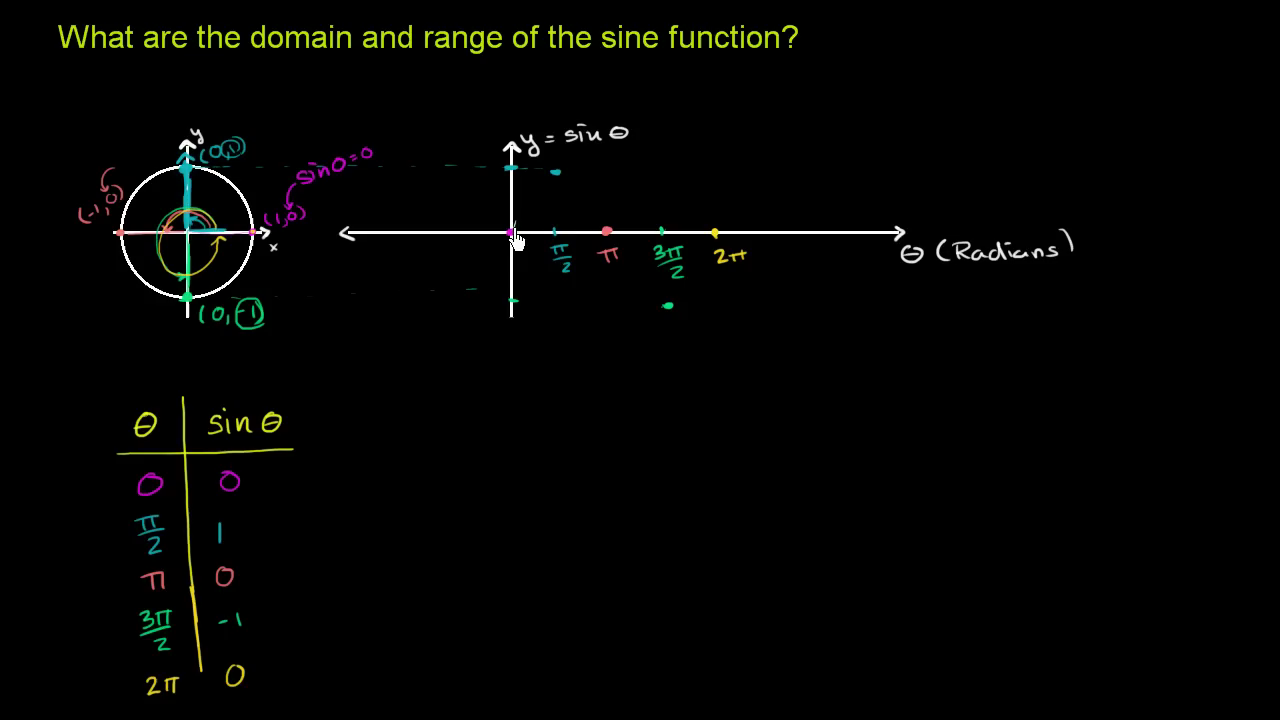 What are the domain and range of the sine function?
y
(0,1)
sin 0 = 0
(-1,0)
(1,0)
x
(0,-1)
y = sin θ
π/2
π
3π/2
2π
θ (Radians)
θ sin θ
0 0
π/2 1
π 0
3π/2 -1
2π 0